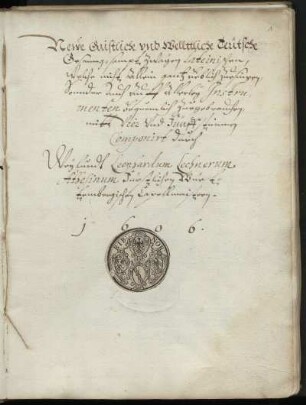 Newe Geistliche vnd Welttliche Teutsche
Gesang, sampt zwayen Lateinischen,
Welche nicht allein gantz lieblich zusingen
Sonder auch auff allerley Instru-
menten
mit Vier und Fünff stimmen
Componirt durch
Weylund Leonhardum Lechnerum
Athesinum Fürstlichen Würt-
tembergischen Capellmaistern.
1606.